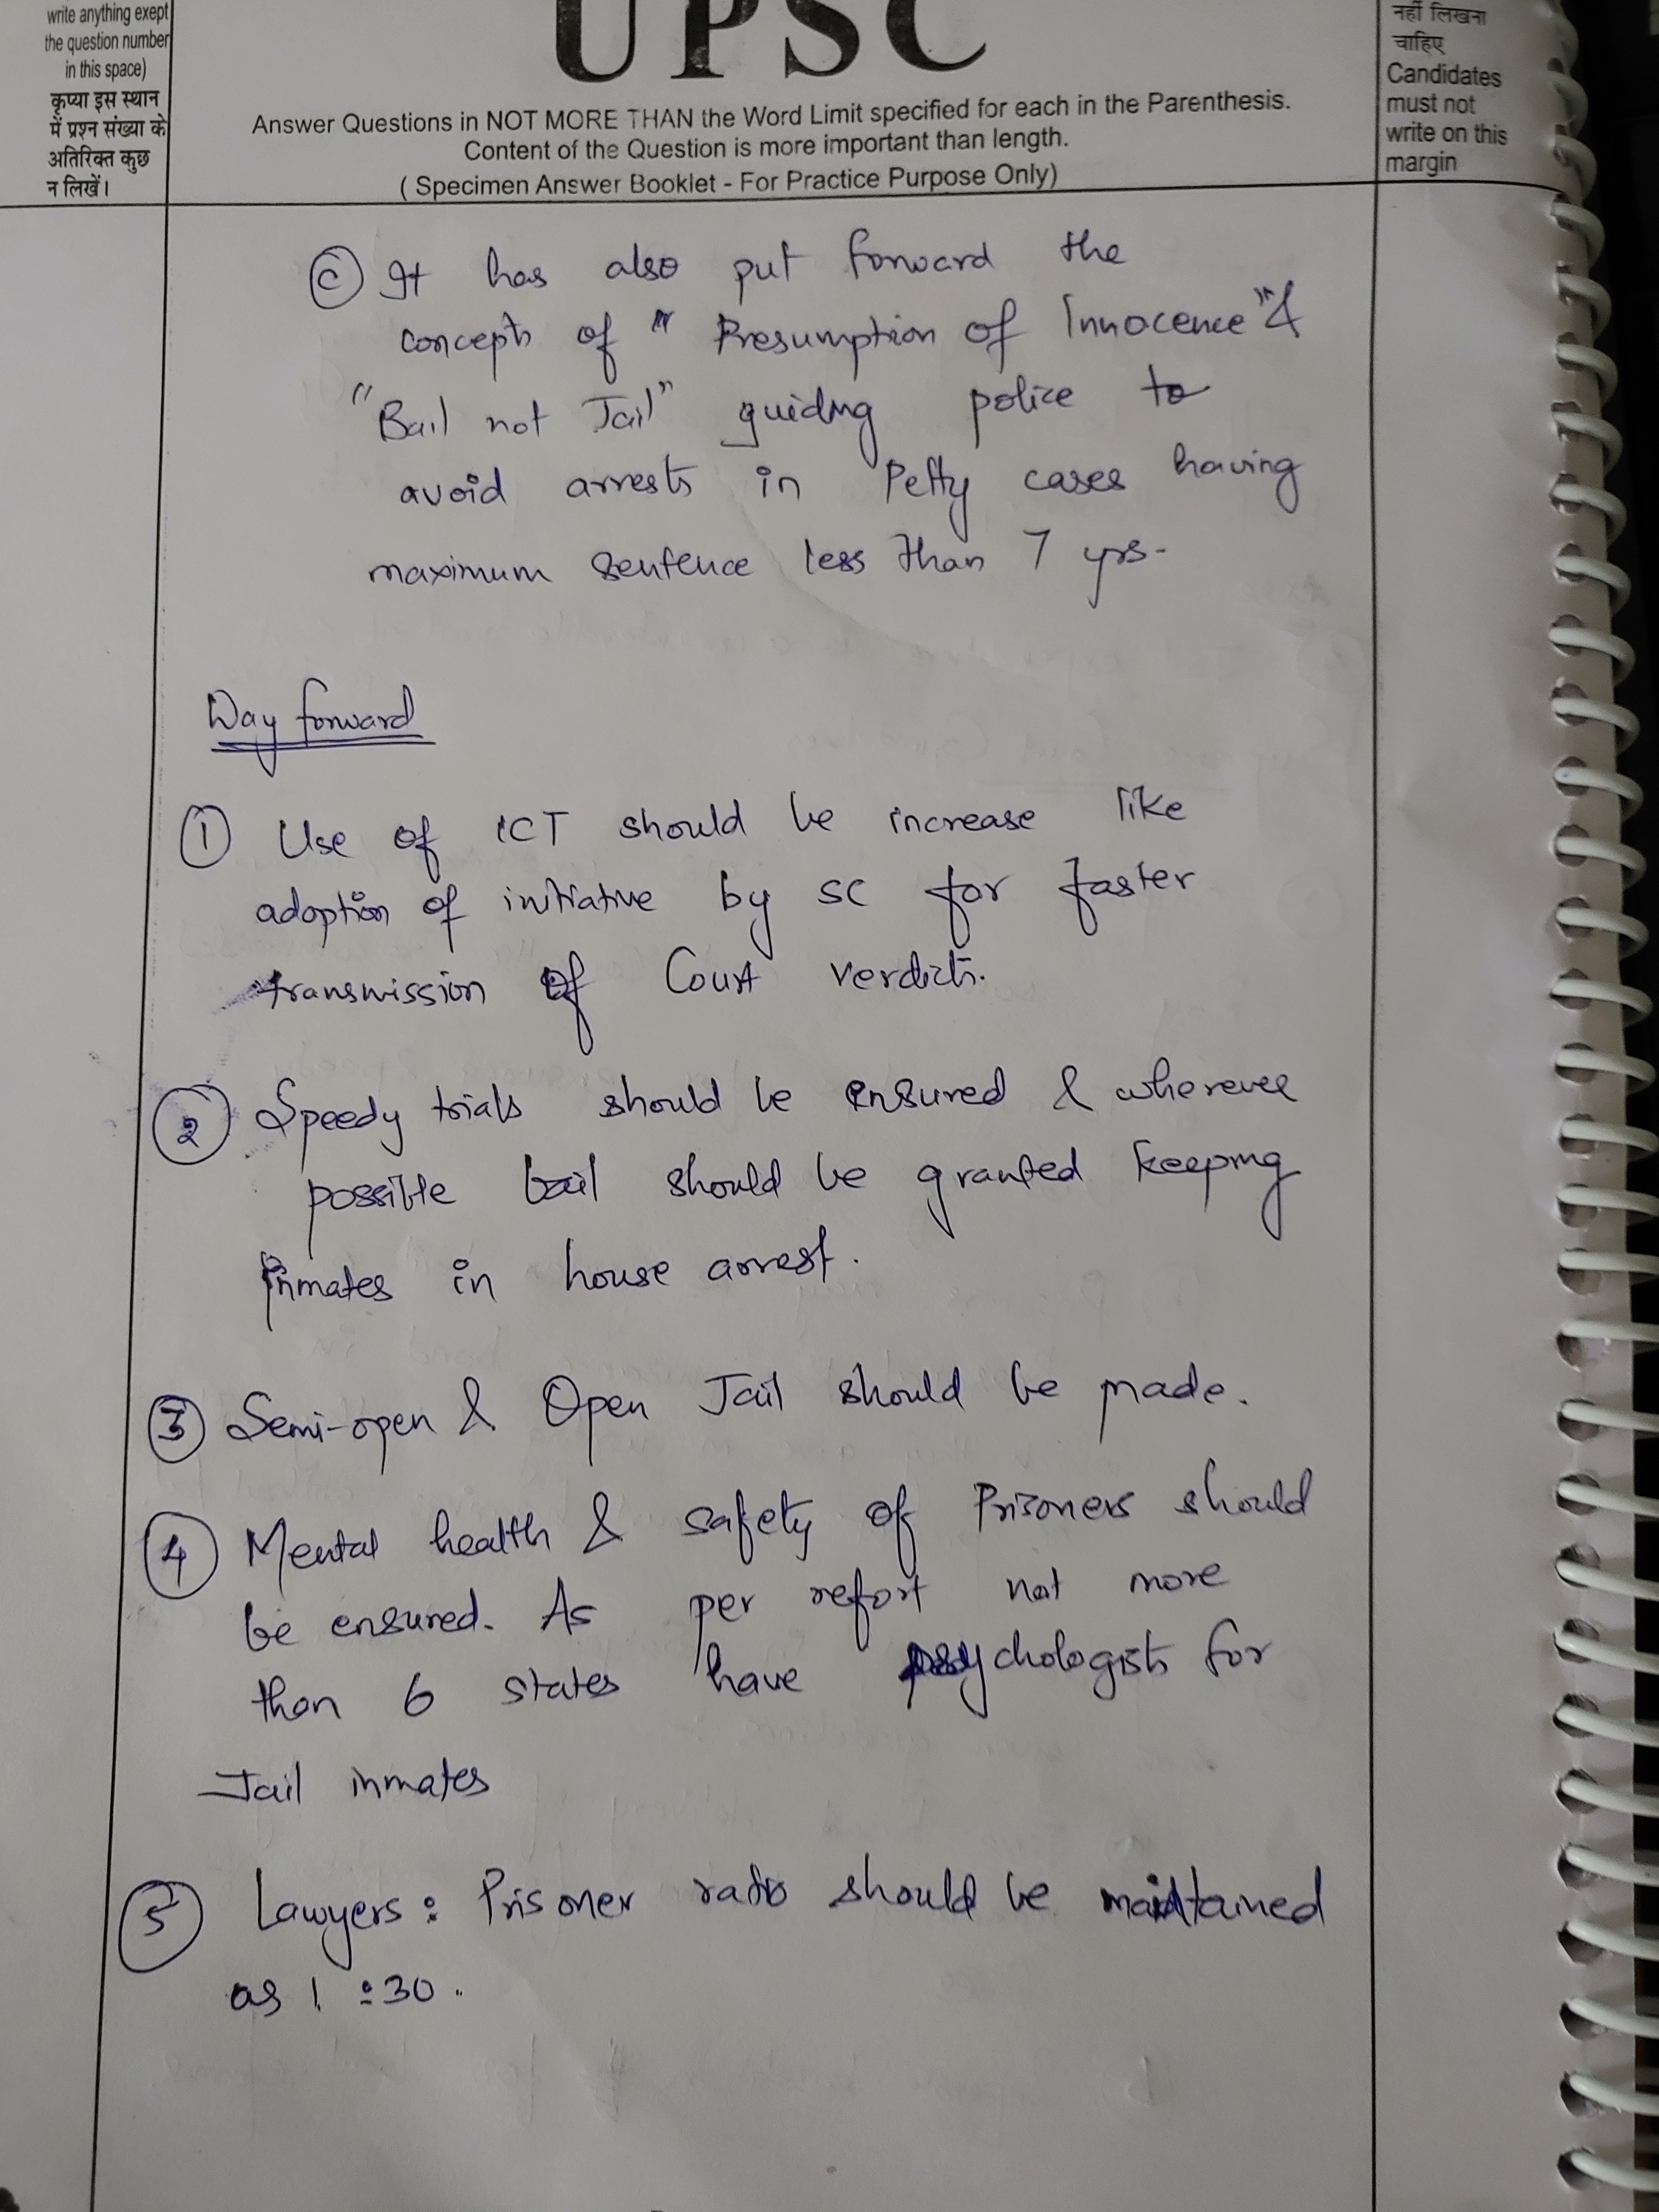 write anything exept
the question number
in this space)
कृप्या इस स्थान
में प्रश्न संख्या के
अतिरिक्त कुछ
न लिखें।
UPSC
Answer Questions in NOT MORE THAN the Word Limit specified for each in the Parenthesis.
Content of the Question is more important than length.
( Specimen Answer Booklet - For Practice Purpose Only)
नहीं लिखना
चाहिए
Candidates
must not
write on this
margin
(C) It has also put forward the
concepts of " Presumption of Innocence" &
"Bail not Jail" guiding police to
avoid arrests in Petty cases having
maximum sentence less than 7 yrs-
Way forward
(1) Use of ICT should be increase like
adoption of initiative by SC for faster
transmission of Court verdicts.
(2) Speedy trials should be ensured & wherever
possible bail should be granted keeping
inmates in house arrest.
(3) Semi-open & Open Jail should be made.
(4) Mental health & safety of Prisoners should
be ensured. As per report not more
than 6 states have psychologists for
Jail inmates
(5) Lawyers : Prisoner ratio should be maintained
as 1 :30.